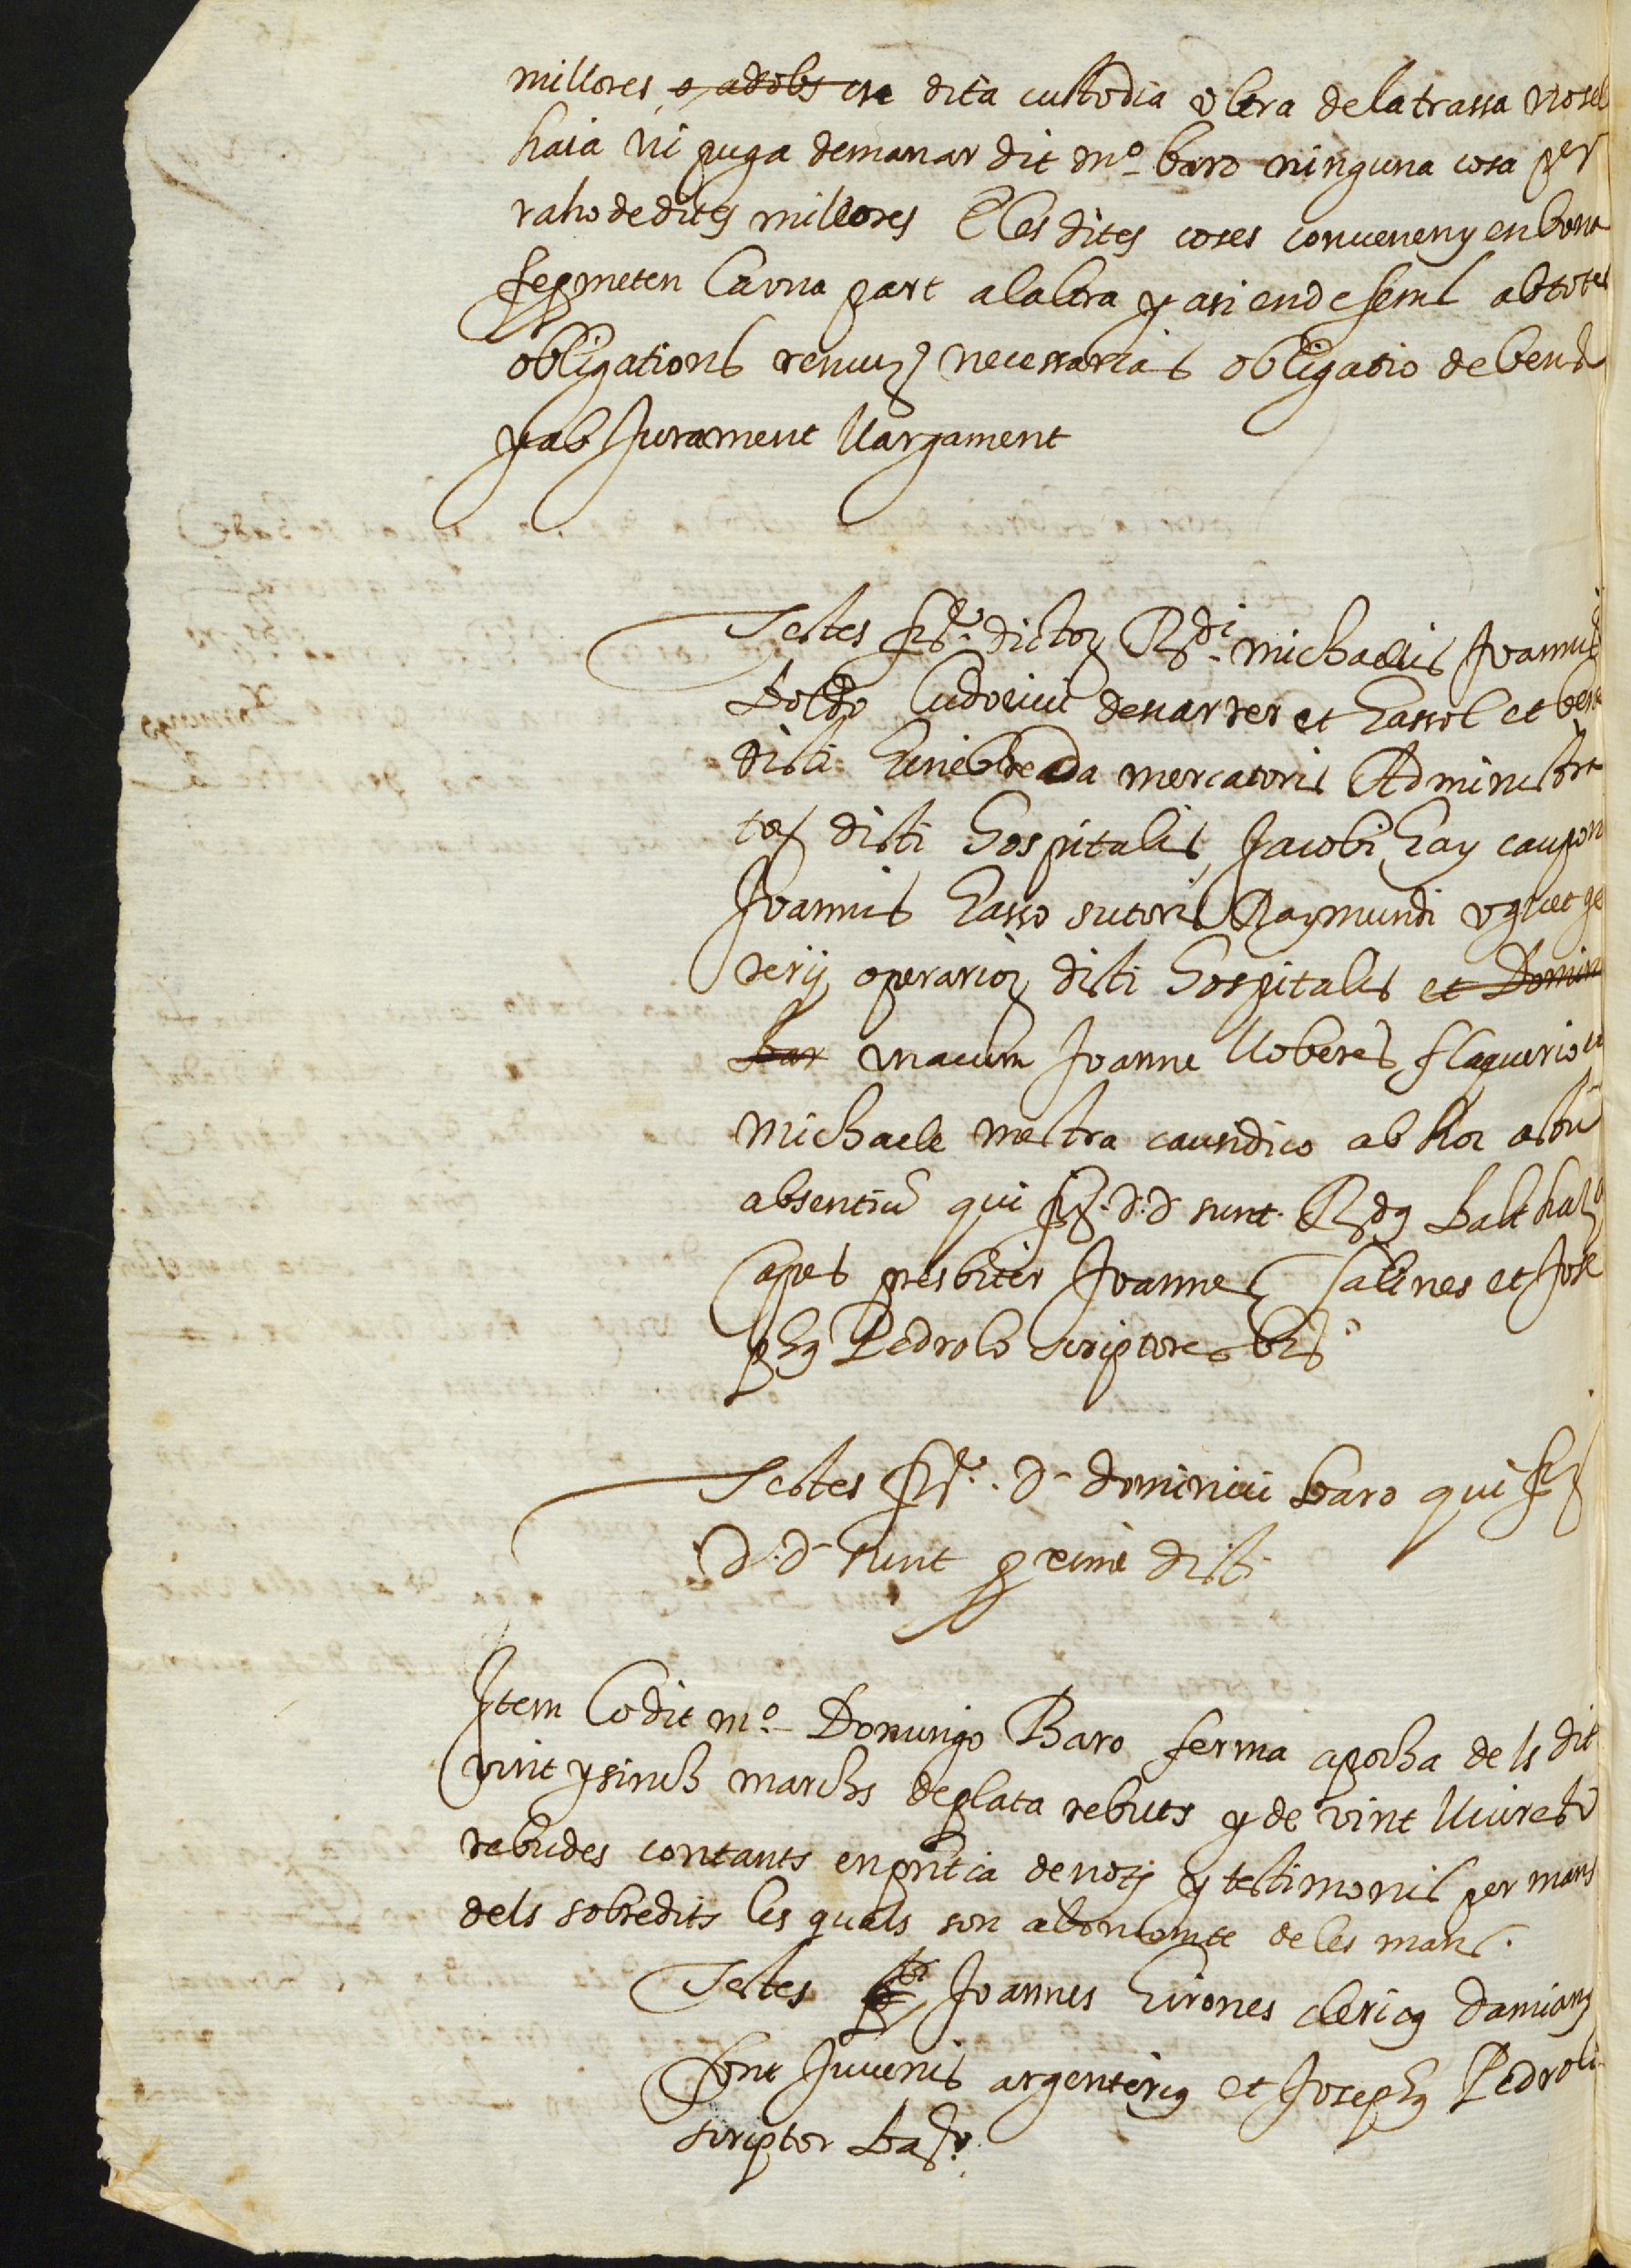 millores e adobs en dita custodia ultra de la trassa no sel
haia ni puga demanar dit m.o baro ninguna cosa per
raho de dites millores E les dites coses convenen y en bona
fe prometen la una part a la altra y asi en desemt ab totes
obligations renun.s necessarias obligatio de bens
y ab Jurament llargament
Testes fir.e dictor R.di michaelis Joannis
boldo ludovici denarrer et Gassol et bene
dicti mercatoris Administra
tor dicti Hospitalis, Jacobi Gay caupon
Joannis Gasso sutoris Raymundi uguet ge
rerij operarior dicti Hospitalis et Domin
bar unacum Joanne lloberes flaquerio et
michaele mestra causidico ab hoc actu
absentiu qui fir. d.d sunt R.dus balthaz
Capes presbiter Joannes Salines et Jose
phus Pedrolo scriptores
Testes fir.e d.ti dominici baro qui fir
d.d sunt proxime dicti
Item lo dit m.o Domingo Baro ferma apocha dels dit
vint y sinch marchs de plata rebuts y de vint lliures
rebudes contants en pntia de not y testimonis per mans
dels sobredits les quals son a bon comte de les mans.
Testes Joannes Girones clericus Damianus
font Juvenis argenterius et Josephus Pedrolo
scriptor